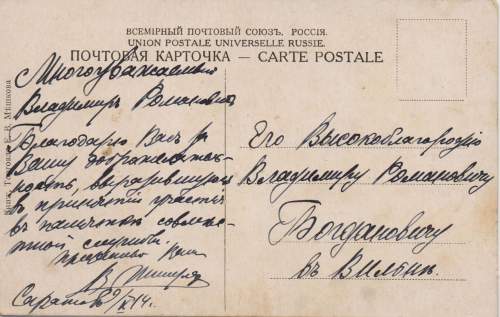 ВСЕМІРНЫЙ ПОЧТОВЫЙ СОЮЗЪ. РОССІЯ.
UNION POSTALE UNIVERSELLE RUSSIE.
ПОЧТОВАЯ КАРТОЧКА — CARTE POSTALE
Многоуважаемый
Владимиръ Романовичъ
Благодарю Васъ за
Вашу доброжелатель-
ность, выразившуюся
въ принятіи участія
въ памятной совмѣс-
тной службѣ.
Преданный Вамъ
Саратовъ 9/IX 14 г.
Его Высокоблагородію
Владимиру Романовичу
Богдановичу
въ Вильнѣ.
Е. В. Мѣшкова